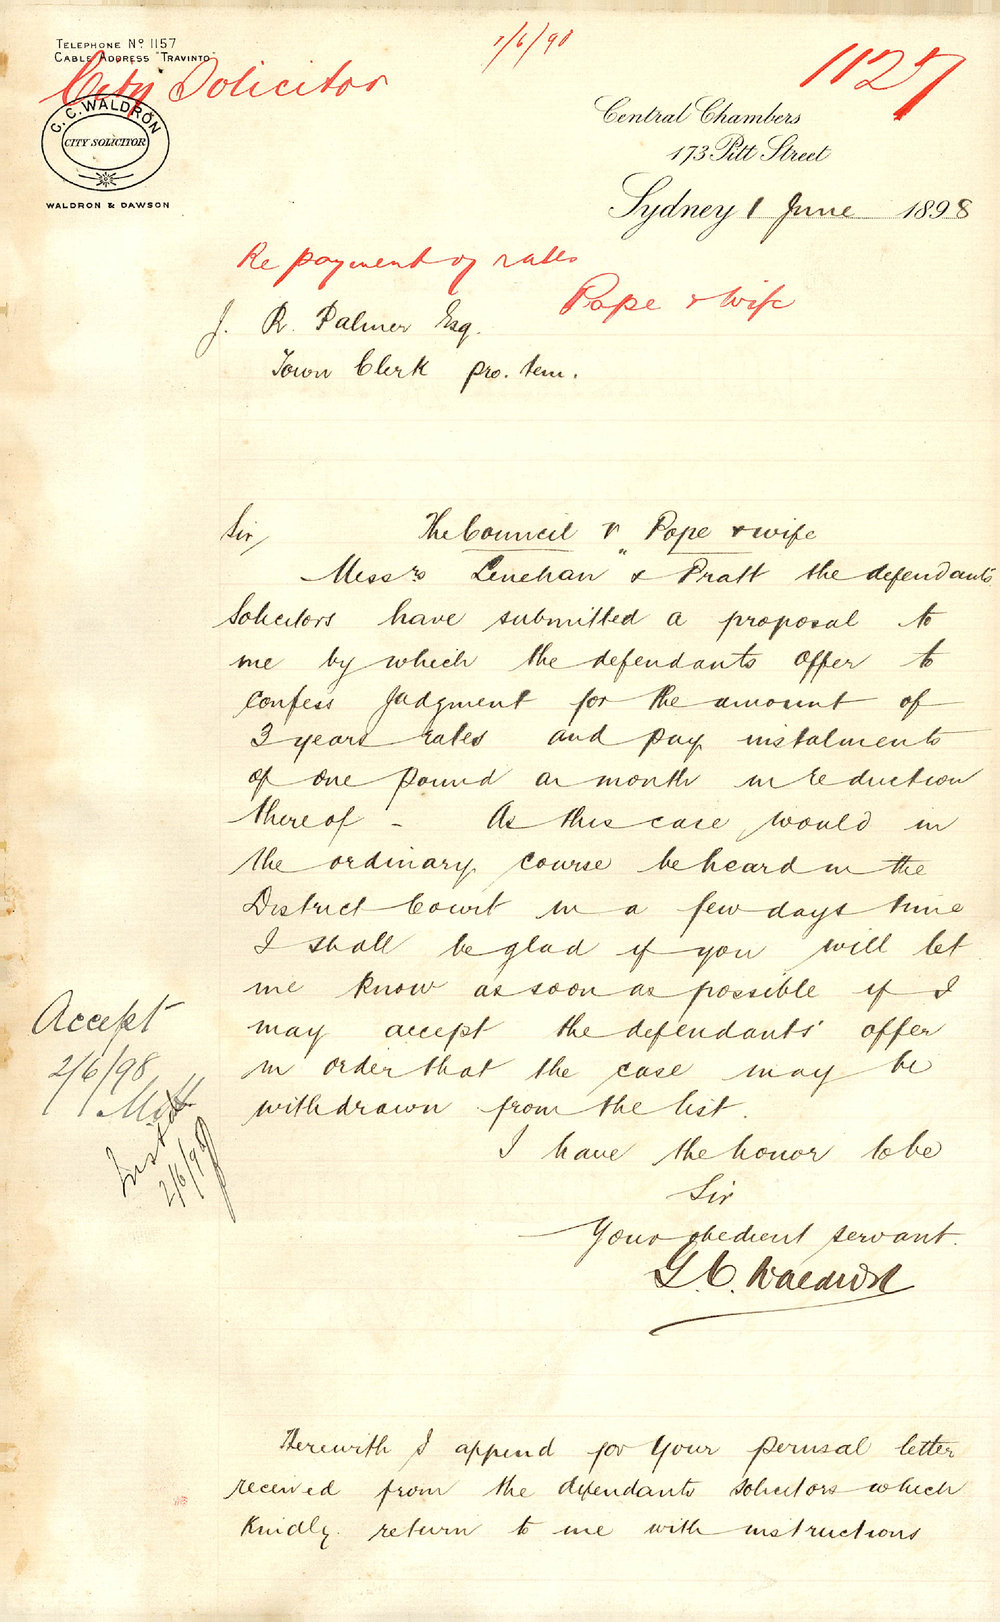 TELEPHONE No 1157
CABLE ADDRESS "TRAVINTO"
1/6/98
1127
City Solicitor
G. C. WALDRON
CITY SOLICITOR
WALDRON & DAWSON
Central Chambers
173 Pitt Street
Sydney 1 June 1898
Re payment of rates
Pope & wife
J. R. Palmer Esq.
Town Clerk pro. tem.
Sir, The Council v Pope & wife
Messrs Lenehan & Pratt the defendants
Solicitors have submitted a proposal to
me by which the defendants offer to
confess judgment for the amount of
3 years rates and pay instalments
of one pound a month in reduction
thereof - As this case would in
the ordinary course be heard in the
District Court in a few days time
I shall be glad if you will let
me know as soon as possible if I
may accept the defendants' offer
in order that the case may be
withdrawn from the list.
I have the honor to be
Sir
Your obedient servant.
G. C. Waldron
Accept
2/6/98
2/6/98
Herewith I append for your perusal letter
received from the defendants solicitors which
kindly return to me with instructions